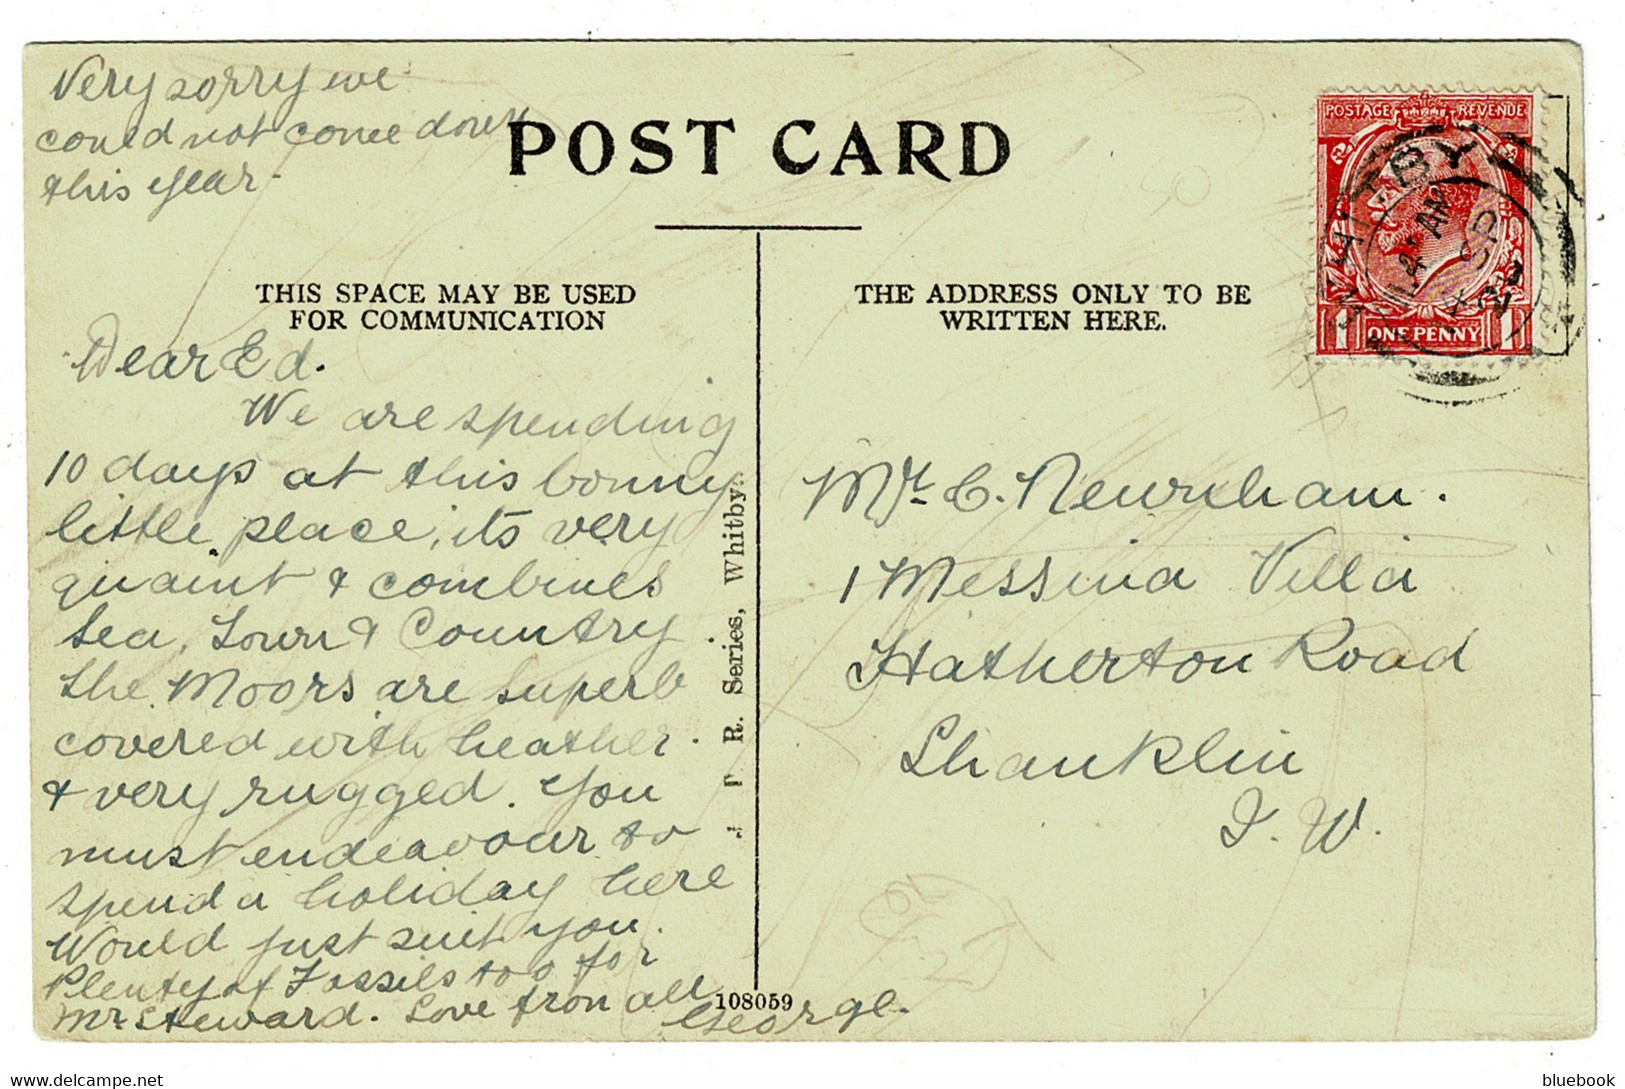 Very sorry we
could not come down
this year.
POST CARD
THIS SPACE MAY BE USED
FOR COMMUNICATION
Dear Ed.
We are spending
10 days at this bonny
little place, its very
quaint & combines
Sea, Town & Country.
The Moors are superb
covered with heather.
& very rugged. You
must endeavour to
spend a holiday here
Would just suit you.
Plenty of Fossils too for
Mr Steward. Love from all
George.
J T R. Series, Whitby.
108059
THE ADDRESS ONLY TO BE
WRITTEN HERE.
POSTAGE REVENUE
1 ONE PENNY 1
WHITBY
AM
SP
Mr. E. Newnham.
1 Messina Villa
Hatherton Road
Shanklin
I. W.
delcampe.net
bluebook